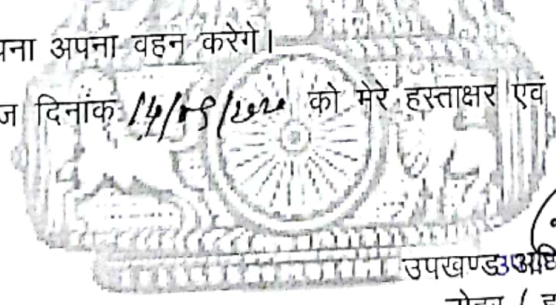 पना अपना वहन करेगे।
ज दिनांक 14/09/2020 को मेरे हस्ताक्षर एवं
उपखण्ड